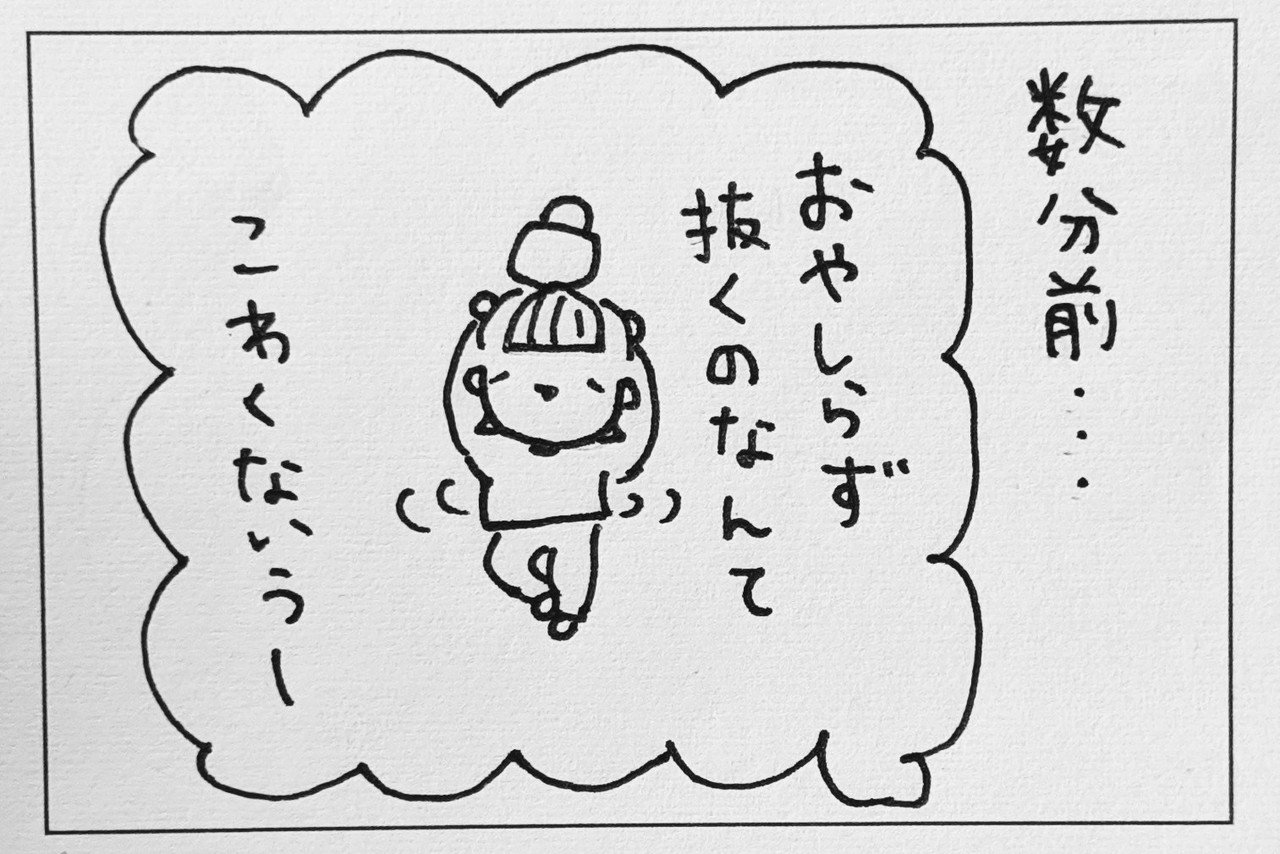 数分前・・・
おやしらず
抜くのなんて
こわくないうー